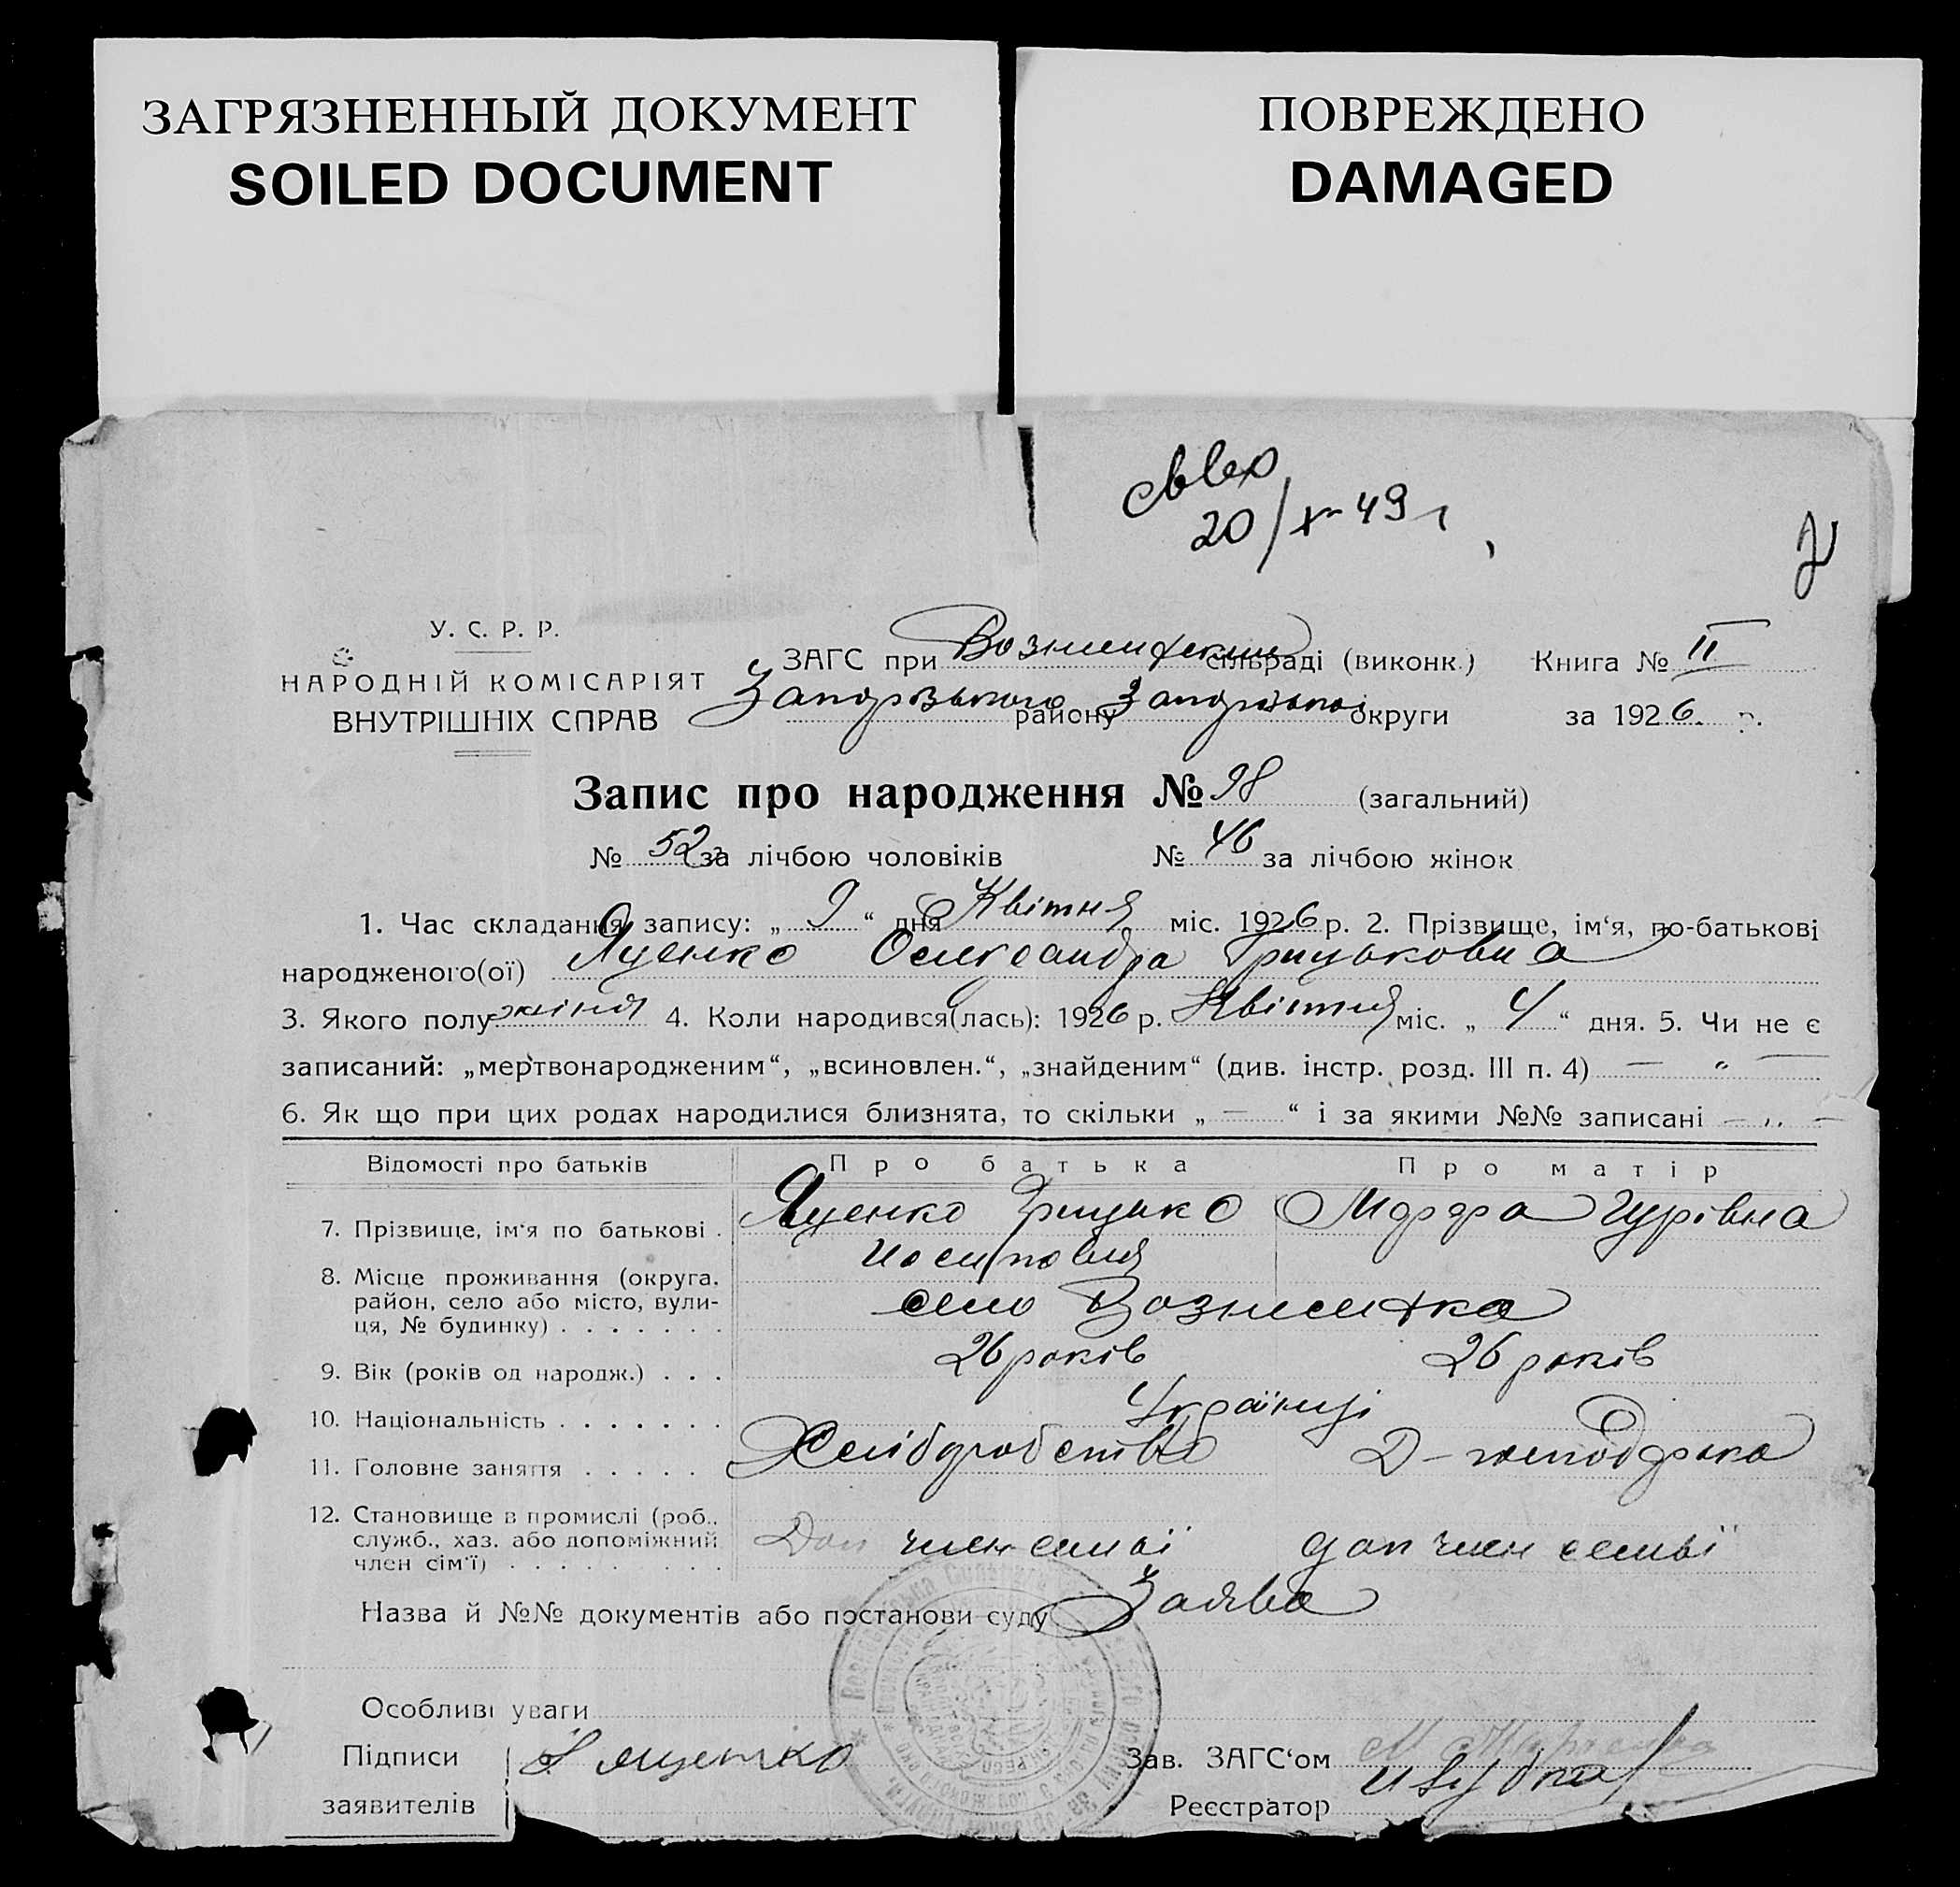 ЗАГРЯЗНЕННЫЙ ДОКУМЕНТ
SOILED DOCUMENT
ПОВРЕЖДЕНО
DAMAGED
20/X 49 г
У. С. Р. Р.
НАРОДНІЙ КОМІСАРІЯТ
ВНУТРІШНІХ СПРАВ
ЗАГС при Вознесенскій сільраді (виконк.) Книга № II
Запорізького району Запорізької округи за 1926 р.
Запис про народження № 98 (загальний)
№ 52 за лічбою чоловіків № 46 за лічбою жінок
1. Час складання запису: „ 9 “ дня Квітня міс. 1926 р. 2. Прізвище, ім‘я, по-батькові
народженого(ої) Яценко Олександра Грицьковна
3. Якого полу жіноч 4. Коли народився(лась): 1926 р. Квітня міс. „ 4 “ дня. 5. Чи не є
записаний: „мертвонародженим“, „всиновлен.“, „знайденим“ (див. інстр. розд. III п. 4) — „ —
6. Як що при цих родах народилися близнята, то скільки „ — “ і за якими №№ записані — „ —
Відомості про батьків Про батька Про матір
7. Прізвище, ім‘я по батькові . Яценко Грицько Марфа Гурівна
Иосипович
8. Місце проживання (округа,
район, село або місто, вули-
ця, № будинку) . . . . . . . село Вознесенка
9. Вік (років од народж.) . . . 26 років 26 років
10. Національність . . . . . . . Українці
11. Головне заняття . . . . . Хліборобство Д-господарка
12. Становище в промислі (роб.,
служб., хаз. або допоміжний
член сім‘ї) . . . . . . . . . Доп член семьї доп член семьї
Назва й №№ документів або постанови суду Заява
Особливі уваги
Підписи
заявителів Яценко
Зав. ЗАГС‘ом
Реєстратор